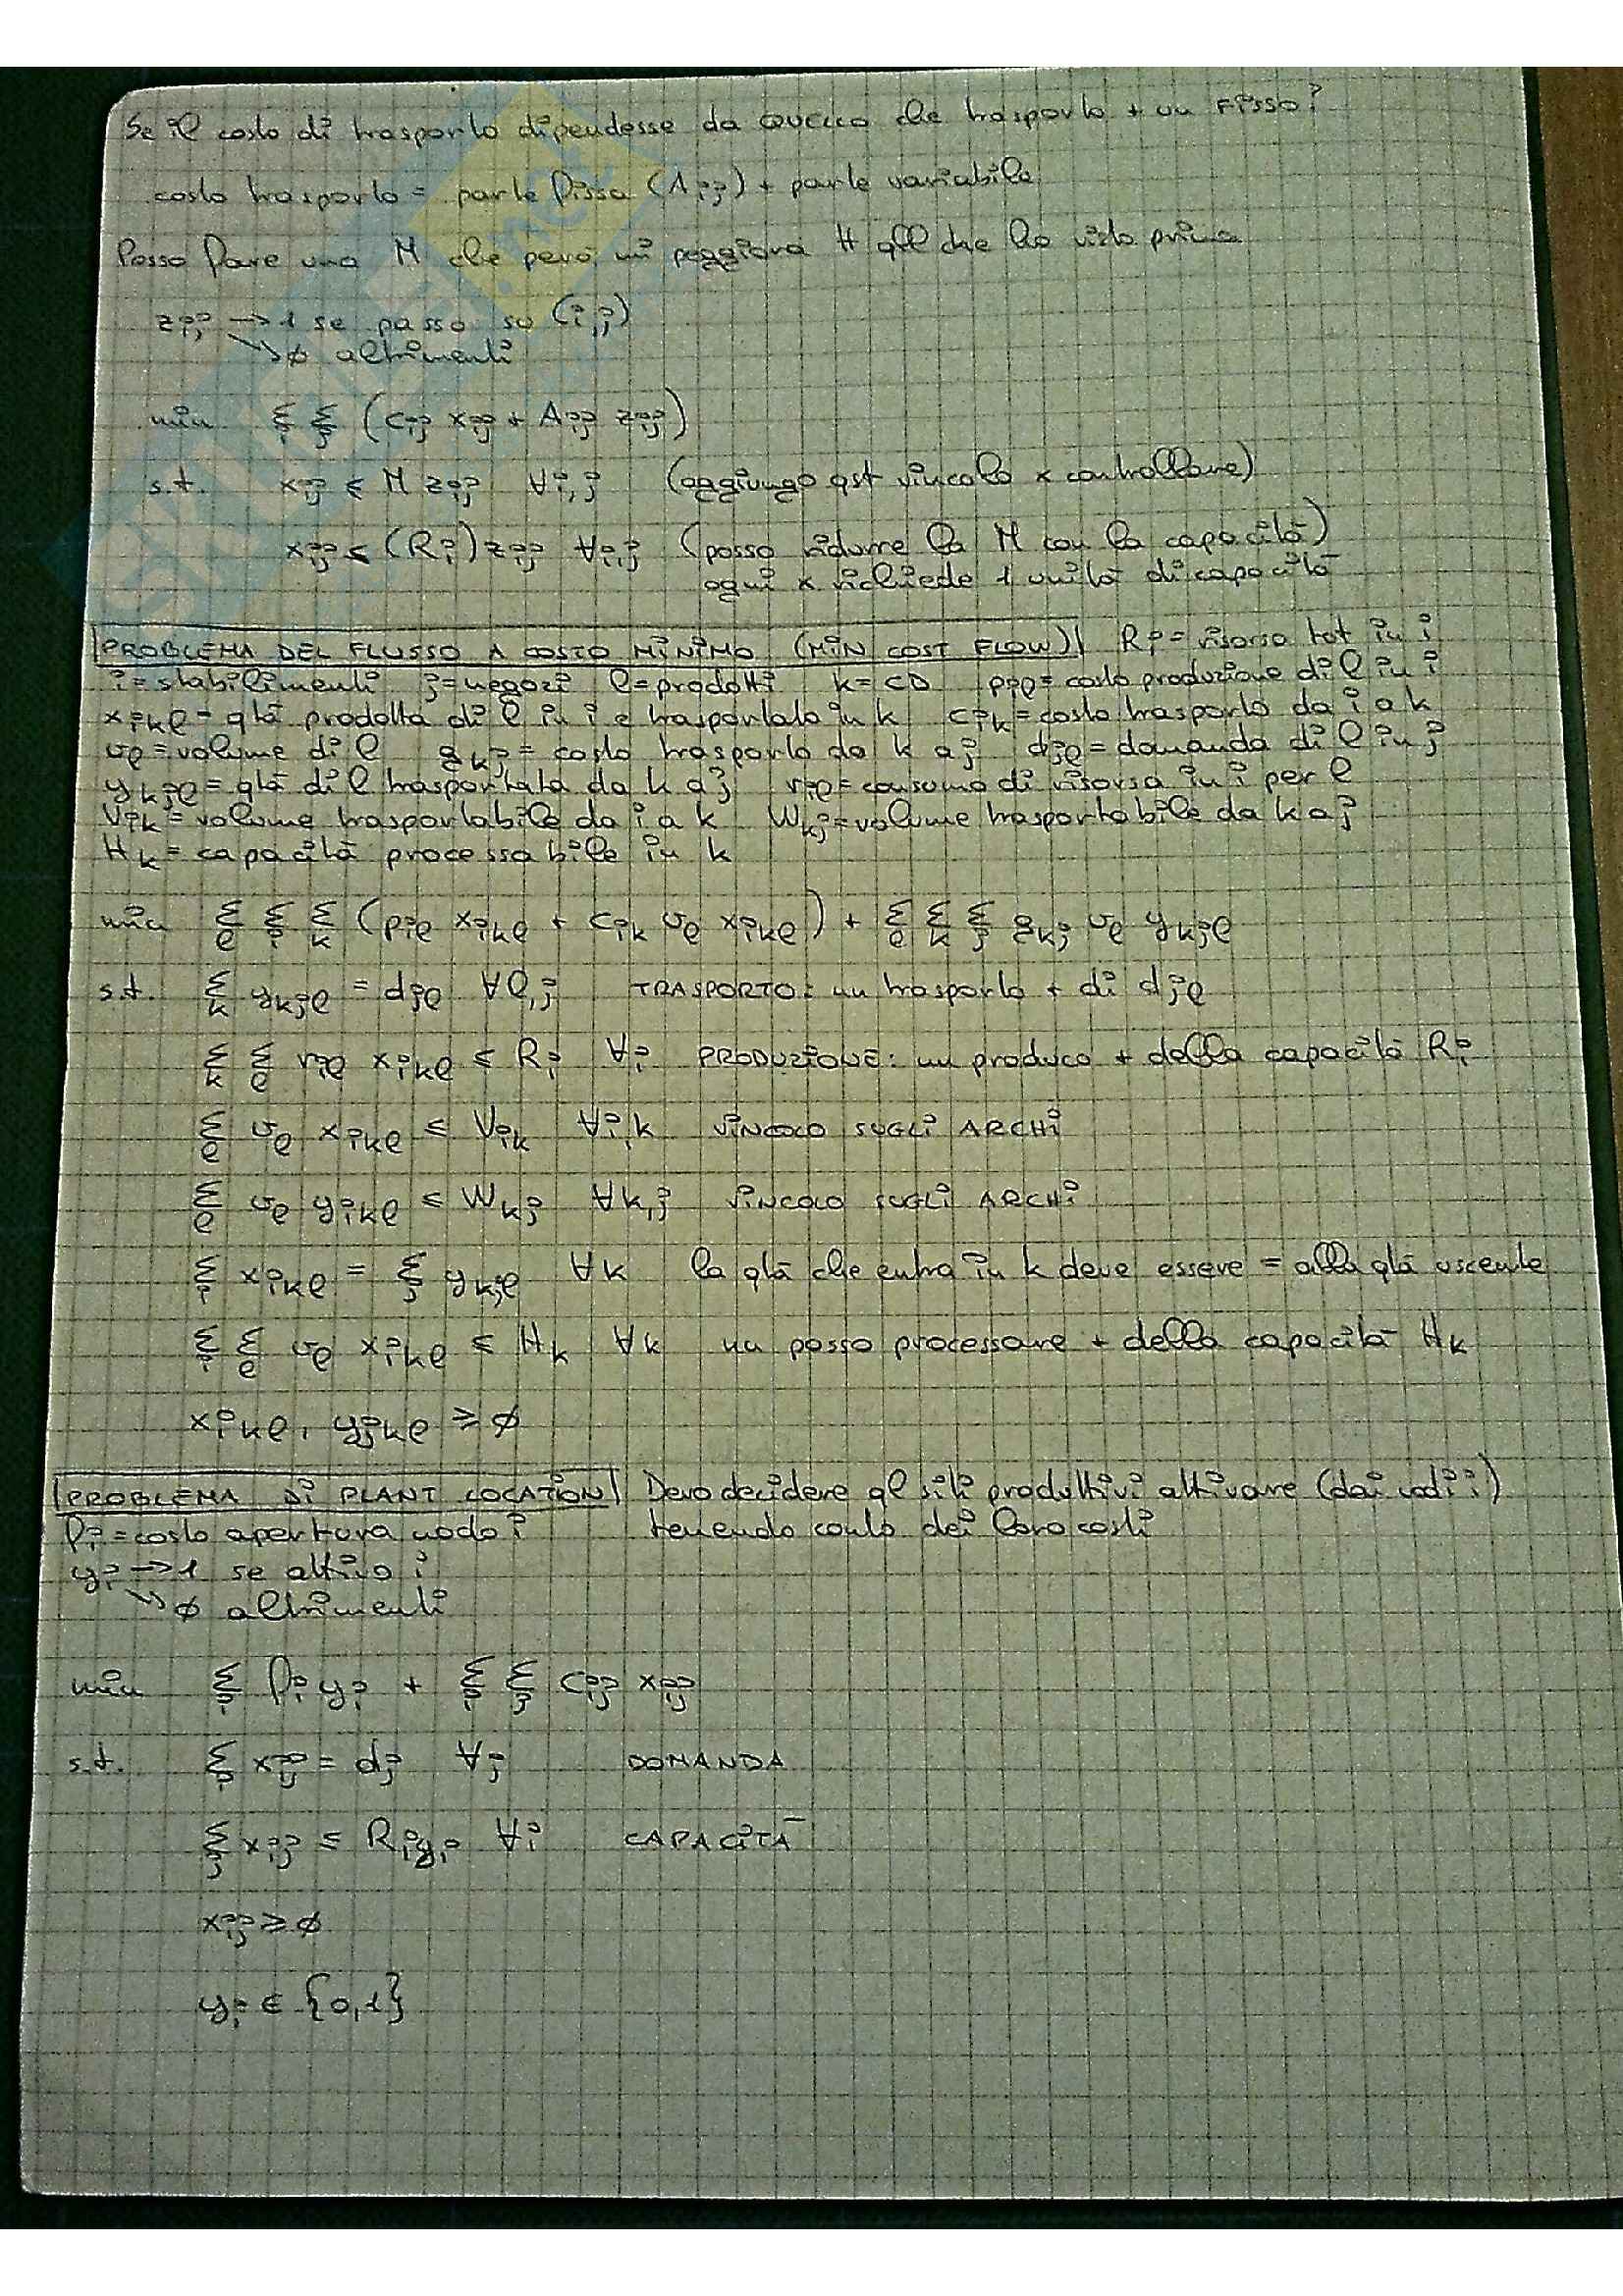 Se il costo di trasporto dipendesse da QUELLO che trasporto + un FISSO?
costo trasporto = parte fissa (Aij) + parte variabile
Posso fare una M che però mi peggiora tt qll che ho visto prima
zij → 1 se passo su (i,j)
↘ ∅ altrimenti
min Σi Σj (cij xij + Aij zij)
s.t. xij ≤ M zij ∀i,j (aggiungo qst vincolo x controllare)
xij ≤ (Ri) zij ∀i,j (posso ridurre la M con la capacità)
ogni x richiede 1 unità di capacità
PROBLEMA DEL FLUSSO A COSTO MINIMO (MIN COST FLOW) Ri = risorsa tot in i
i = stabilimenti j = negozi l = prodotti k = CD pil = costo produzione di l in i
xikl = qtà prodotta di l in i e trasportato in k cik = costo trasporto da i a k
vl = volume di l gkj = costo trasporto da k a j djl = domanda di l in j
ykjl = qtà di l trasportata da k a j ril = consumo di risorsa in i per l
Vik = volume trasportabile da i a k Wkj = volume trasportabile da k a j
Hk = capacità processabile in k
min Σl Σi Σk (pil xikl + cik vl xikl) + Σl Σk Σj gkj vl ykjl
s.t. Σk ykjl = djl ∀l,j TRASPORTO: nn trasporto + di djl
Σk Σl ril xikl ≤ Ri ∀i PRODUZIONE: nn produco + della capacità Ri
Σl vl xikl ≤ Vik ∀i,k VINCOLO SUGLI ARCHI
Σl vl yikl ≤ Wkj ∀k,j VINCOLO SUGLI ARCHI
Σi xikl = Σj ykjl ∀k la qtà che entra in k deve essere = alla qtà uscente
Σi Σl vl xikl ≤ Hk ∀k nn posso processare + della capacità Hk
xikl, yjkl ≥ ∅
PROBLEMA DI PLANT LOCATION Devo decidere ql siti produttivi attivare (dai nodi i)
fi = costo apertura nodo i tenendo conto dei loro costi
yi → 1 se attivo i
↘ ∅ altrimenti
min Σi fi yi + Σi Σj cij xij
s.t. Σi xij = dj ∀j DOMANDA
Σj xij ≤ Ri yi ∀i CAPACITÀ
xij ≥ ∅
yi ∈ {0,1}